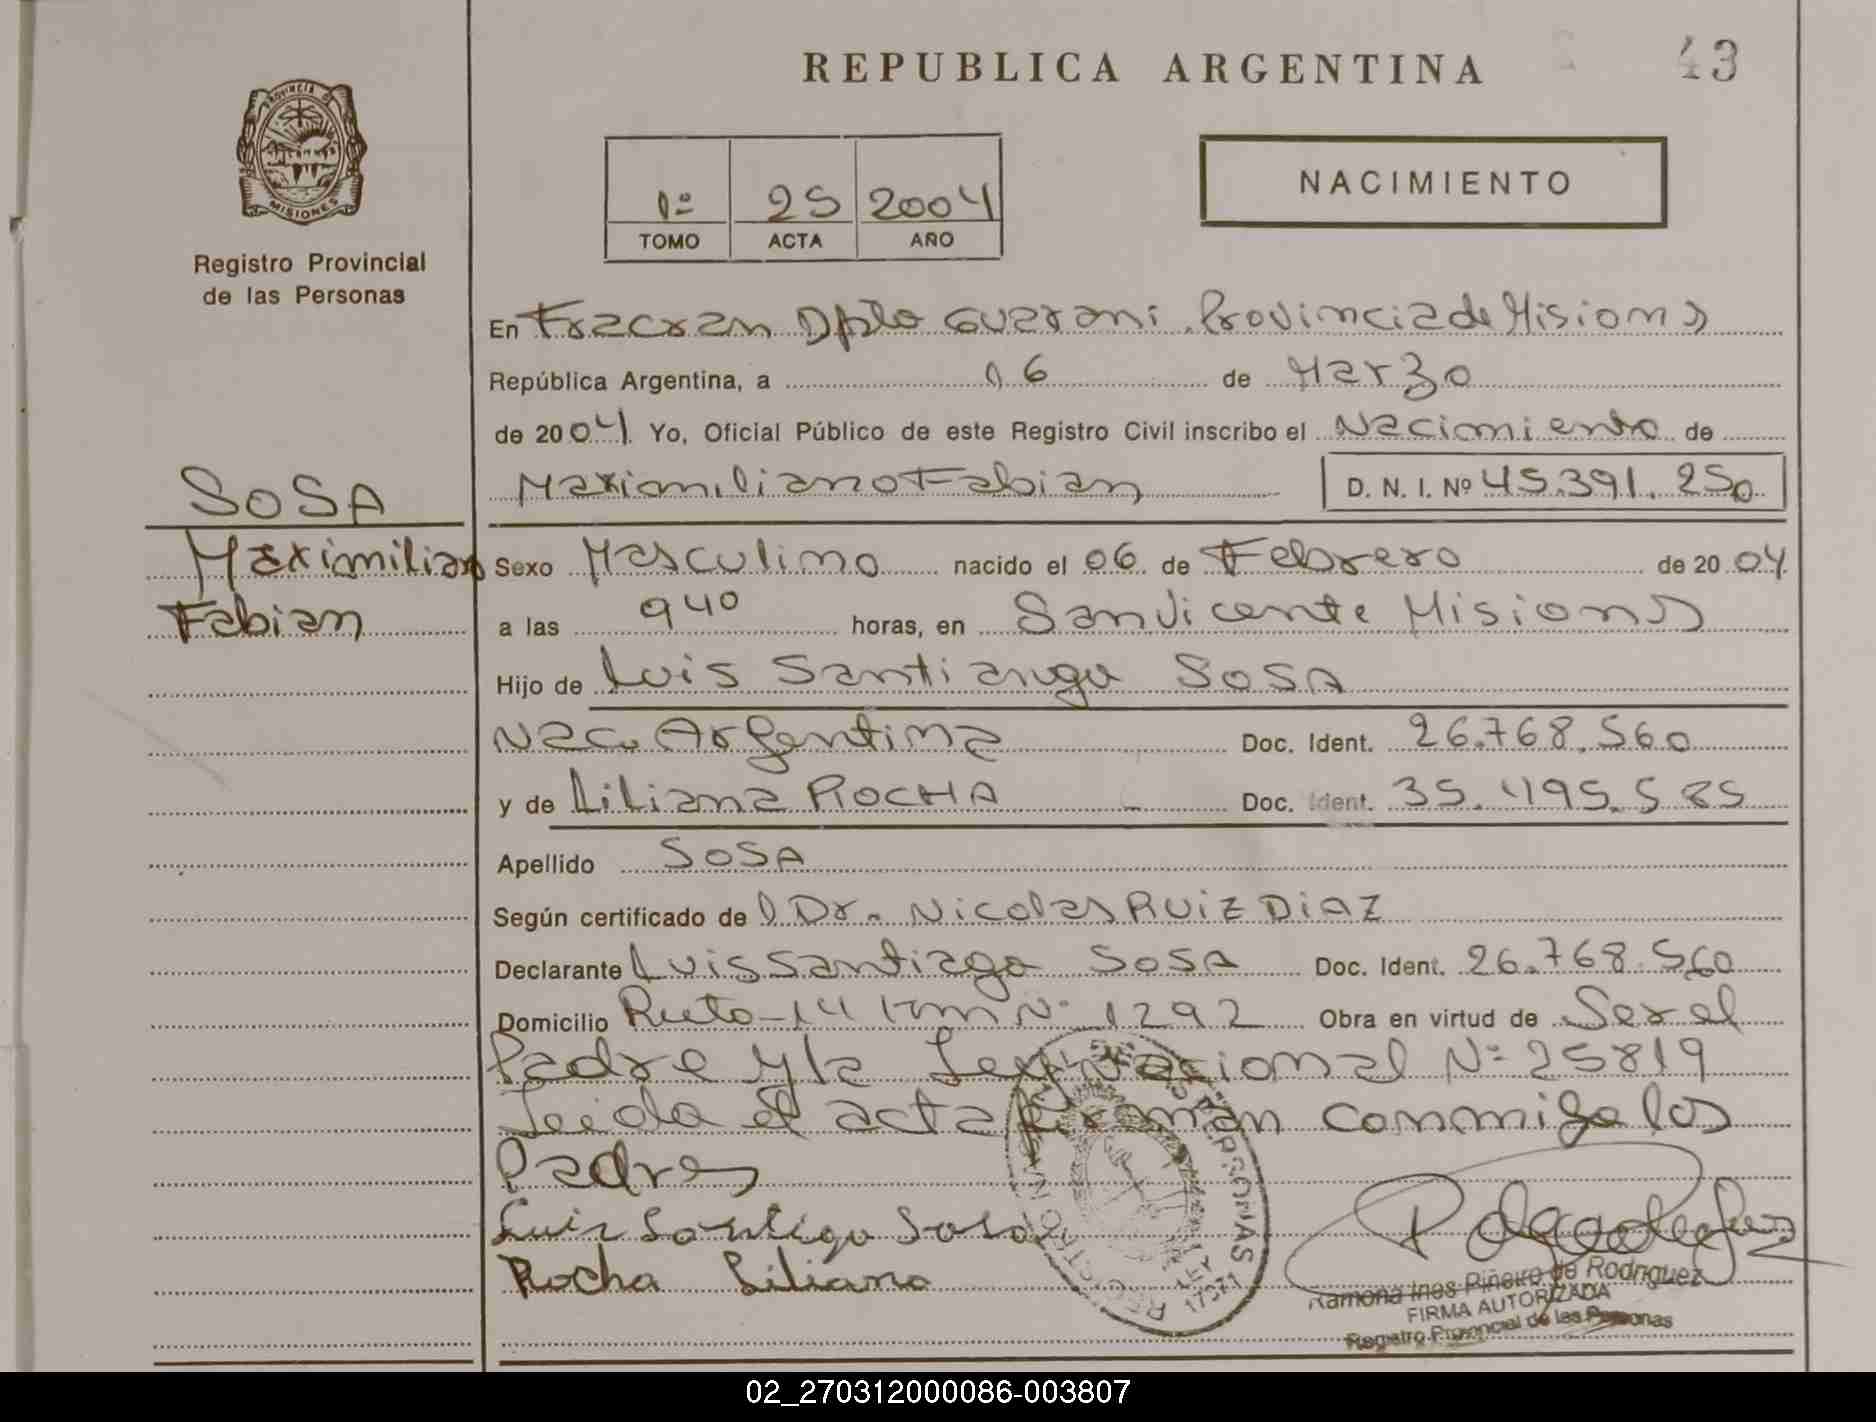 REPUBLICA ARGENTINA
43
PROVINCIA DE
MISIONES
Registro Provincial
de las Personas
1º 25 2004
TOMO ACTA AÑO
NACIMIENTO
En Fracran Dpto Guarani Provincia de Misiones
República Argentina, a 16 de Marzo
de 2004 Yo, Oficial Público de este Registro Civil inscribo el Nacimiento de
Maximiliano Fabian D. N. I. Nº 45.391.250
SOSA
Maximiliano
Fabian
Sexo Masculino nacido el 06 de Febrero de 2004
a las 940 horas, en San Vicente Misiones
Hijo de Luis Santiango SOSA
Nac. Argentina Doc. Ident. 26.768.560
y de Liliana ROCHA Doc. Ident. 35.495.585
Apellido SOSA
Según certificado de Dr. Nicolas RUIZ DIAZ
Declarante Luis Santiago SOSA Doc. Ident. 26.768.560
Domicilio Ruta 14 Km Nº 1292 Obra en virtud de Ser el
Padre y la Ley Nacional Nº 25819
Leida el acta firman conmigo los
Padres
Luis Santigo Sosa
Rocha Liliana
Ramona Ines Piñeiro de Rodriguez
FIRMA AUTORIZADA
Registro Provincial de las Personas
02_270312000086-003807